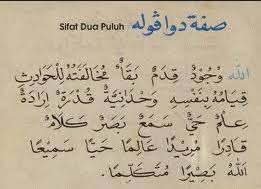 صفة دوا ڤوله
Sifat Dua Puluh
الله وُجُوْدٌ قِدَمٌ بَقَاءٌ مُخَالَفَتُهُ لِلْحَوَادِثِ
قِيَامُهُ بِنَفْسِهِ وَحْدَانِيَّةٌ قُدْرَةٌ إِرَادَةٌ
عِلْمٌ حَيٌّ سَمَعٌ بَصَرٌ كَلَامٌ
قَادِرًا مُرِيْدًا عَالِمًا حَيًّا سَمِيْعًا
اللهُ بَصِيْرًا مُتَكَلِّمًا.